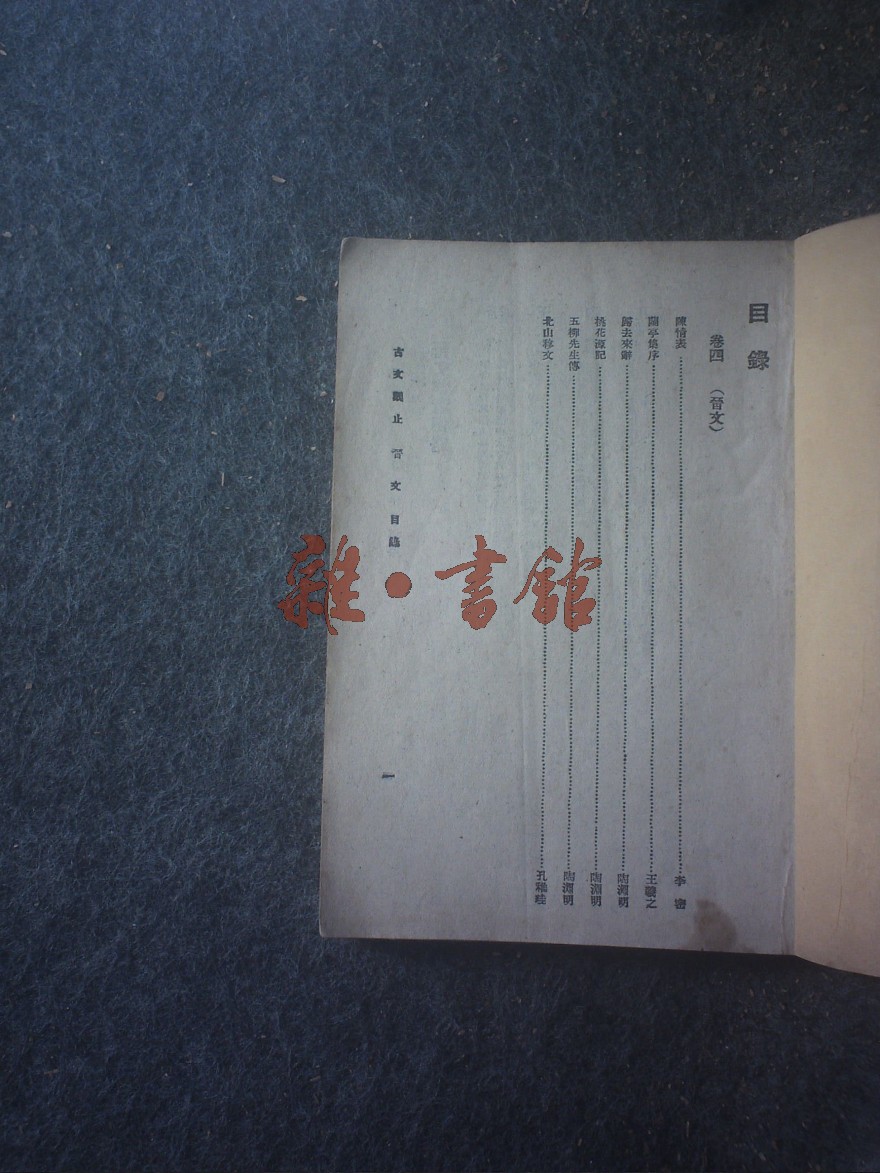 目錄
卷四（晉文）
陳情表……李密
蘭亭集序……王羲之
歸去來辭……陶淵明
桃花源記……陶淵明
五柳先生傳……陶淵明
北山移文……孔稚珪
古文觀止 晉文 目錄
一
雜·書館